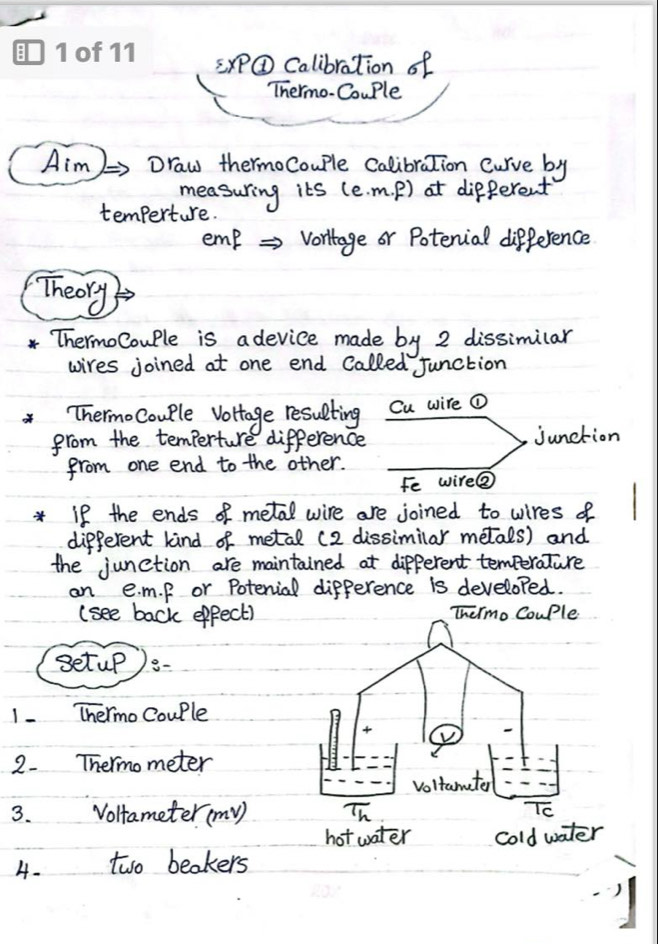 1 of 11
EXP① Calibration of
Thermo-Couple
Aim ⇒ Draw thermoCouple Calibration Curve by
measuring its (e.m.f) at different
temperture.
emf ⇒ Vorltage or Potenial difference
Theory ⇒
* ThermoCouple is a device made by 2 dissimilar
wires joined at one end Called Junction
* ThermoCouple Voltage resulting
from the temperture difference
from one end to the other.
Cu wire ①
junction
Fe wire②
* if the ends of metal wire are joined to wires of
different kind of metal (2 dissimilar metals) and
the junction are maintained at different temperature
an e.m.f or Potenial difference is developed.
(see back effect)
Thermo Couple
Setup :-
1- Thermo Couple
2- Thermo meter
3. Voltameter (mv)
4- two beakers
+
-
V
Voltameter
Th
hot water
Tc
Cold water